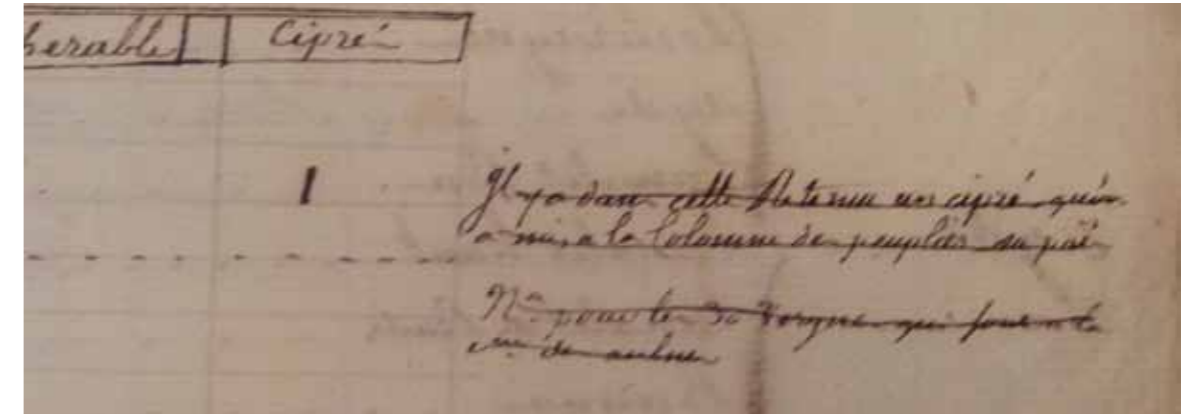 herable Cipré
1
Jl ya dans cette Retenue un cipré qu'on
a mis a la Colomne de peuplier
pour les 30 Vergne qui sont a la
de aulne